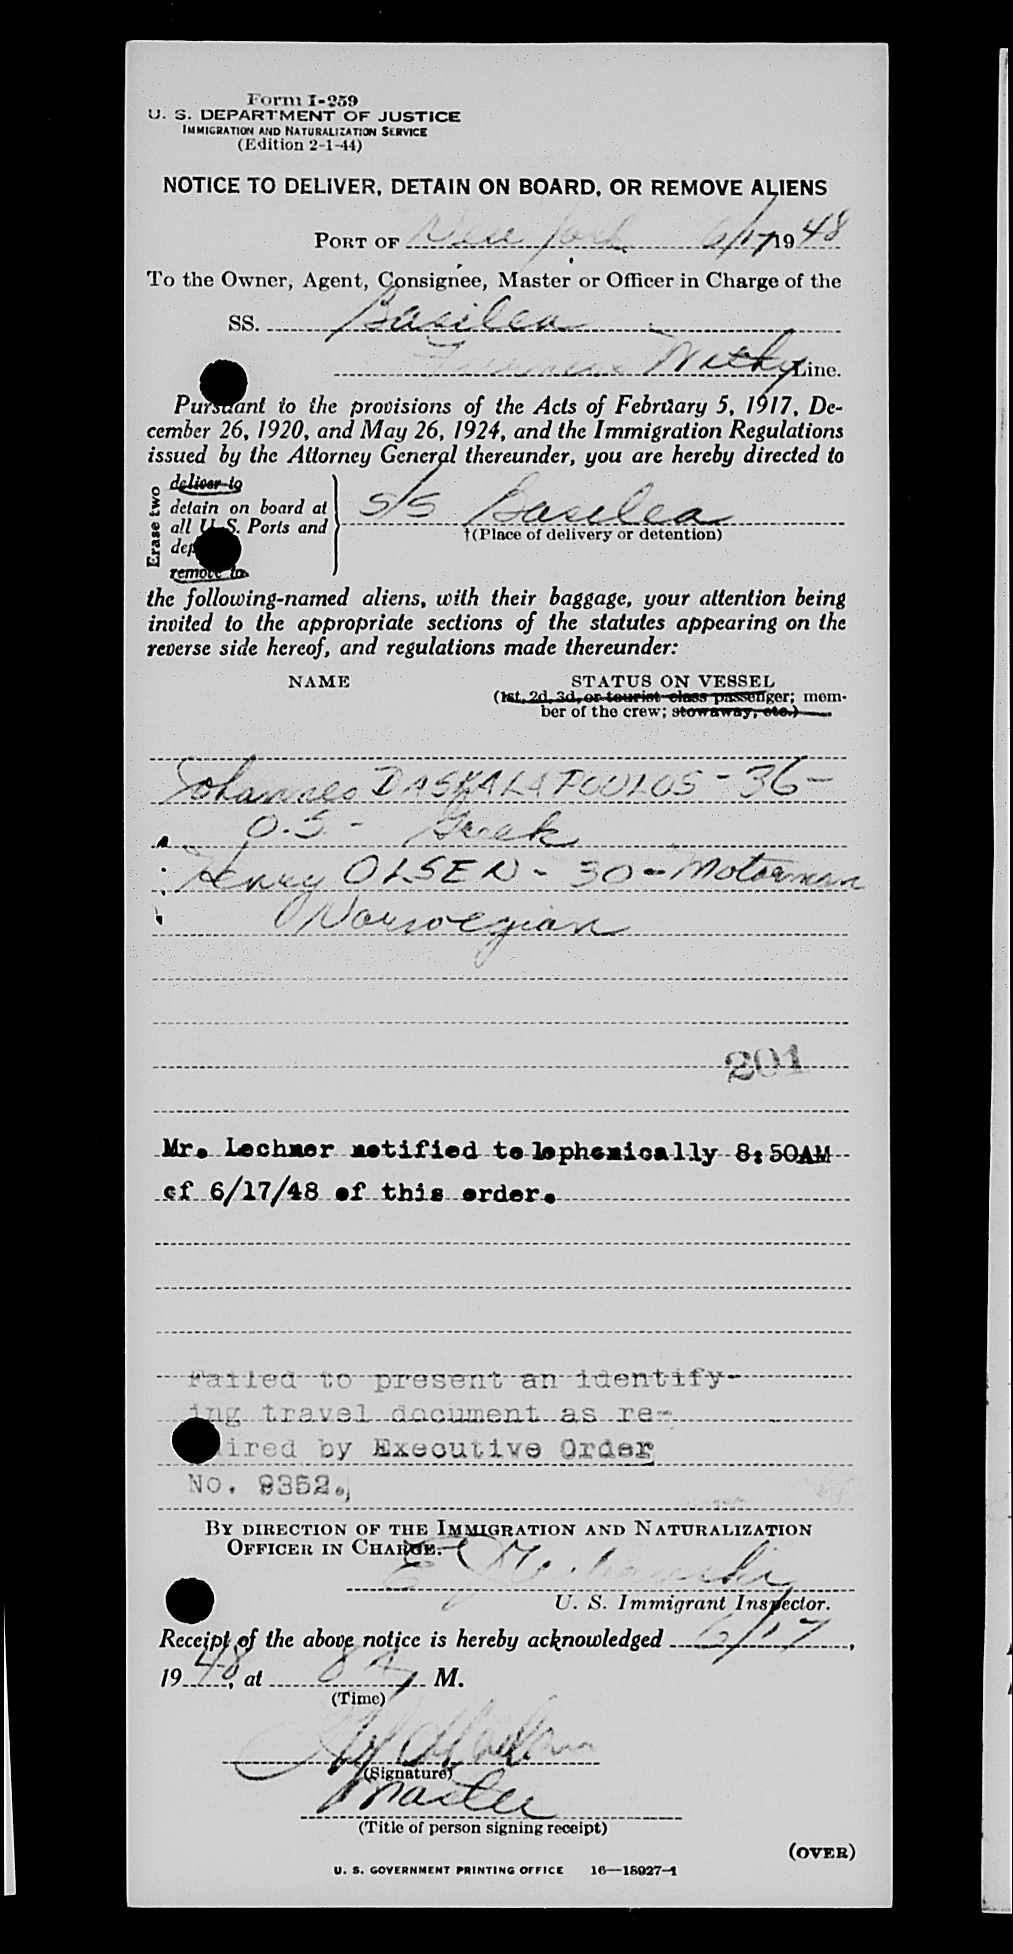 Form I-259
U. S. DEPARTMENT OF JUSTICE
IMMIGRATION AND NATURALIZATION SERVICE
(Edition 2-1-44)
NOTICE TO DELIVER, DETAIN ON BOARD, OR REMOVE ALIENS
PORT OF New York 6/17 1948
To the Owner, Agent, Consignee, Master or Officer in Charge of the
SS. Basilea
Withy Line.
Pursuant to the provisions of the Acts of February 5, 1917, De-
cember 26, 1920, and May 26, 1924, and the Immigration Regulations
issued by the Attorney General thereunder, you are hereby directed to
Erase two
deliver to
detain on board at
all U. S. Ports and
dep
remove to
S/S Basilea
†(Place of delivery or detention)
the following-named aliens, with their baggage, your attention being
invited to the appropriate sections of the statutes appearing on the
reverse side hereof, and regulations made thereunder:
NAME STATUS ON VESSEL
(1st, 2d, 3d, or tourist class passenger; mem-
ber of the crew; stowaway, etc.)
Johannes DASKALAPOULOS - 36 -
O.S. - Greek
Henry OLSEN - 30 - Motorman
Norwegian
201
Mr. Lechner notified telephonically 8:50AM
of 6/17/48 of this order.
Failed to present an identify-
ing travel document as re-
uired by Executive Order
No. 9352.
BY DIRECTION OF THE IMMIGRATION AND NATURALIZATION
OFFICER IN CHARGE.
U. S. Immigrant Inspector.
Receipt of the above notice is hereby acknowledged 6/17,
1948, at 8 A. M.
(Time)
(Signature)
Master
(Title of person signing receipt)
(OVER)
U. S. GOVERNMENT PRINTING OFFICE 16—18927-1